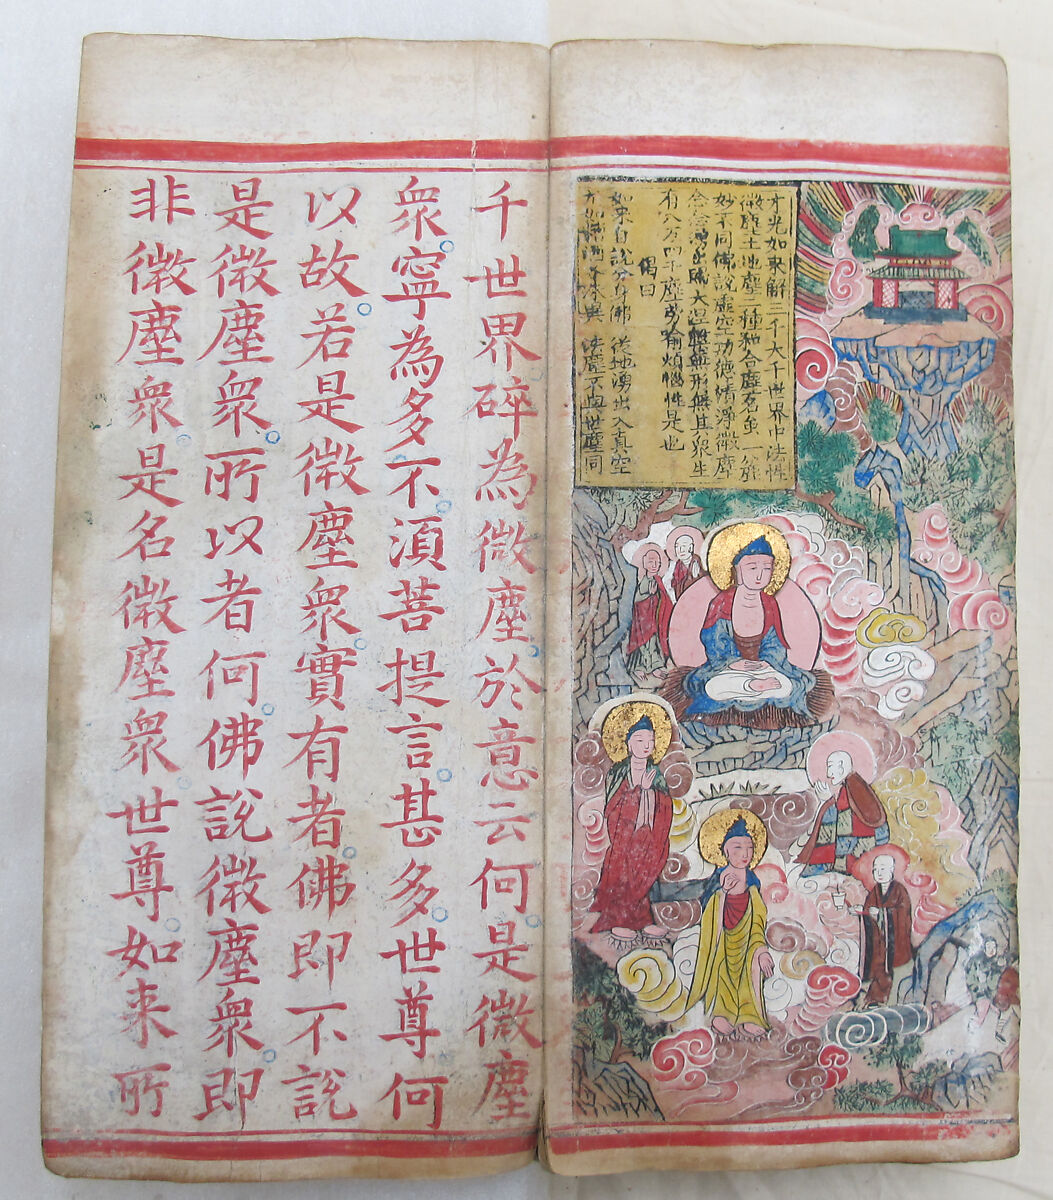 光如来解三千大千世界中法性
微塵土地塵二種粘合塵名
妙不同佛說虛空功德清淨微塵
念念大涅槃無形無其衆生
有八万四千塵或有煩惱性是也
偈曰
如来自說分身佛 從地湧出入真空
法塵不與世塵同
千世界碎為微塵於意云何是微塵
衆寧為多不湏菩提言甚多世尊何
以故若是微塵衆實有者佛即不說
是微塵衆所以者何佛說微塵衆即
非微塵衆是名微塵衆世尊如来所